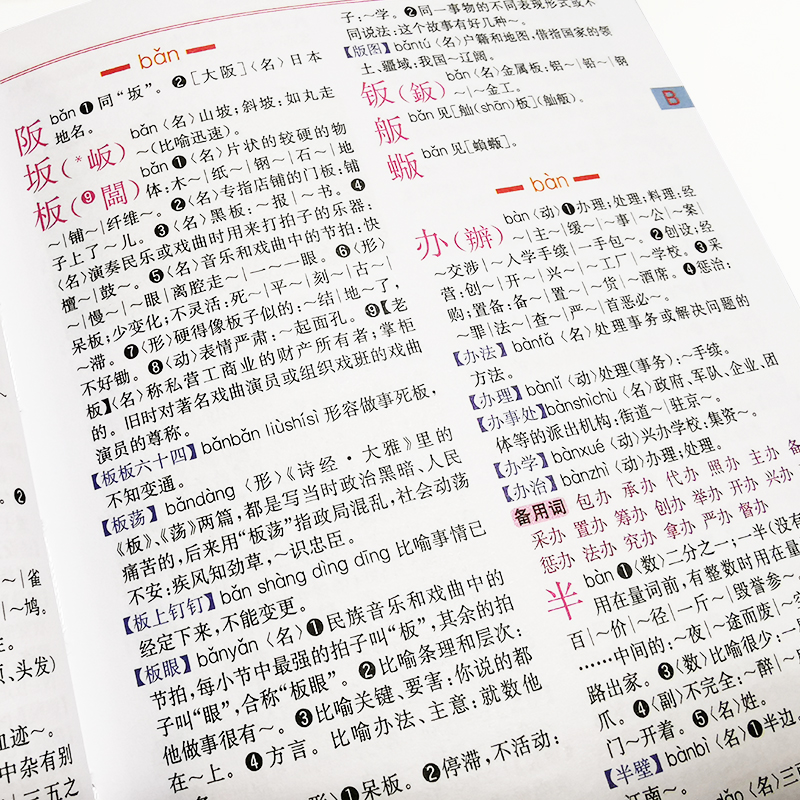 bǎn
阪 bǎn ❶同“坂”。❷[大阪]〈名〉日本
地名。
坂(*岅) bǎn〈名〉山坡;斜坡;如丸走
~(比喻迅速)。
板(❾闆) bǎn ❶〈名〉片状的较硬的物
体:木~|纸~|钢~|石~|地
~|铺~|纤维~。❷〈名〉专指店铺的门板:铺
子上了~儿。❸〈名〉黑板:~报|~书。❹
〈名〉演奏民乐或戏曲时用来打拍子的乐器:
檀~|鼓~。❺〈名〉音乐和戏曲中的节拍:快
~|慢~|~眼|离腔走~|一~一眼。❻〈形〉
呆板;少变化;不灵活:死~|平~|刻~|古~|
~滞。❼〈形〉硬得像板子似的:~结|地~了,
不好锄。❽〈动〉表情严肃:~起面孔。❾【老
板】〈名〉称私营工商业的财产所有者;掌柜
的。旧时对著名戏曲演员或组织戏班的戏曲
演员的尊称。
【板板六十四】bǎnbǎn liùshísì 形容做事死板,
不知变通。
【板荡】bǎndàng〈形〉《诗经·大雅》里的
《板》、《荡》两篇,都是写当时政治黑暗、人民
痛苦的,后来用“板荡”指政局混乱,社会动荡
不安:疾风知劲草,~识忠臣。
【板上钉钉】bǎn shàng dìng dīng 比喻事情已
经定下来,不能变更。
【板眼】bǎnyǎn〈名〉❶民族音乐和戏曲中的
节拍,每小节中最强的拍子叫“板”,其余的拍
子叫“眼”,合称“板眼”。❷比喻条理和层次:
他做事很有~。❸比喻关键、要害:你说的都
在~上。❹方言。比喻办法、主意:就数他
〈形〉❶呆板。❷停滞,不活动:
子;~学。❷同一事物的不同表现形式或不
同说法:这个故事有好几种~。
【版图】bǎntú〈名〉户籍和地图,借指国家的领
土、疆域:我国~辽阔。
钣(鈑) bǎn〈名〉金属板:铝~|铅~|钢
~|~金工。
舨 bǎn 见[舢(shān)板](舢舨)。
蝂 bǎn 见[蝜蝂]。
B
bàn
办(辦) bàn〈动〉❶办理;处理;料理;经
~|主~|缓~|~事|~公|~案|
~交涉|~入学手续|一手包~。❷创设;经
营:创~|开~|兴~|~工厂|~学校。❸采
购;置备:备~|置~|~货|~酒席。❹惩治:
~罪|法~|查~|严~|首恶必~。
【办法】bànfǎ〈名〉处理事务或解决问题的
方法。
【办理】bànlǐ〈动〉处理(事务):~手续。
【办事处】bànshìchù〈名〉政府、军队、企业、团
体等的派出机构:街道~|驻京~。
【办学】bànxué〈动〉兴办学校:集资~。
【办治】bànzhì〈动〉办理;处理。
备用词 包办 承办 代办 照办 主办 备
采办 置办 筹办 创办 举办 开办 兴办
惩办 法办 究办 拿办 严办 督办
半 bàn ❶〈数〉二分之一;一半(没有
用在量词前,有整数时用在量
百|~价|~径|一斤~|毁誉参~
……中间的:~夜|~途而废|~
路出家。❸〈数〉比喻很少:一
爪。❹〈副〉不完全:~醉|~
门~开着。❺〈名〉姓。
【半壁】bànbì〈名〉❶半边
江南~。
❷
~|雀
|~鸠。
、头发)
血迹~。
中杂有别
三五之